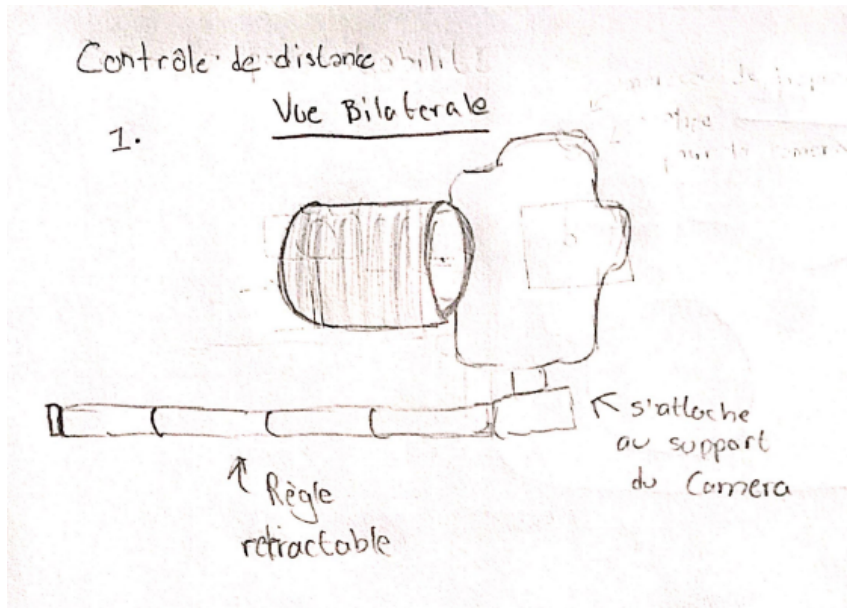 Contrôle de distance
Vue Bilaterale
1.
s'attache
au support
du Camera
Règle
retractable